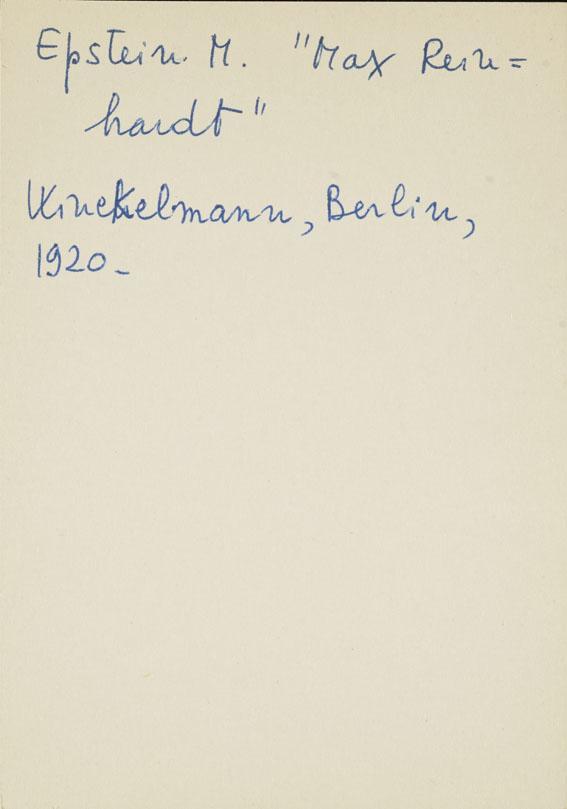 Epstein. M. "Max Rein=
hardt"
Winckelmann, Berlin,
1920_